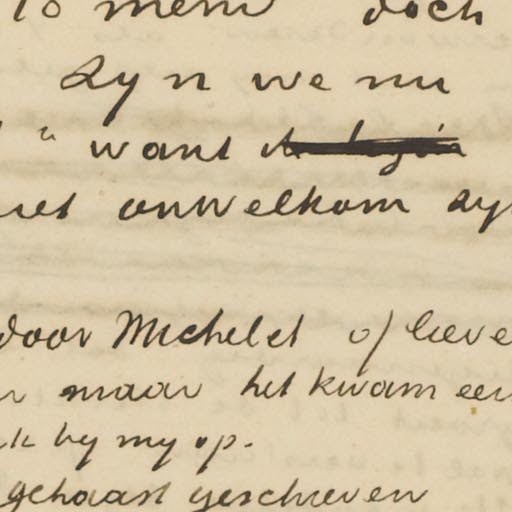 doch
Zyn we nu
" want
onwelkom zy
door Michelet of lieve
maar het kwam een
k by my op.
gehaast geschreven